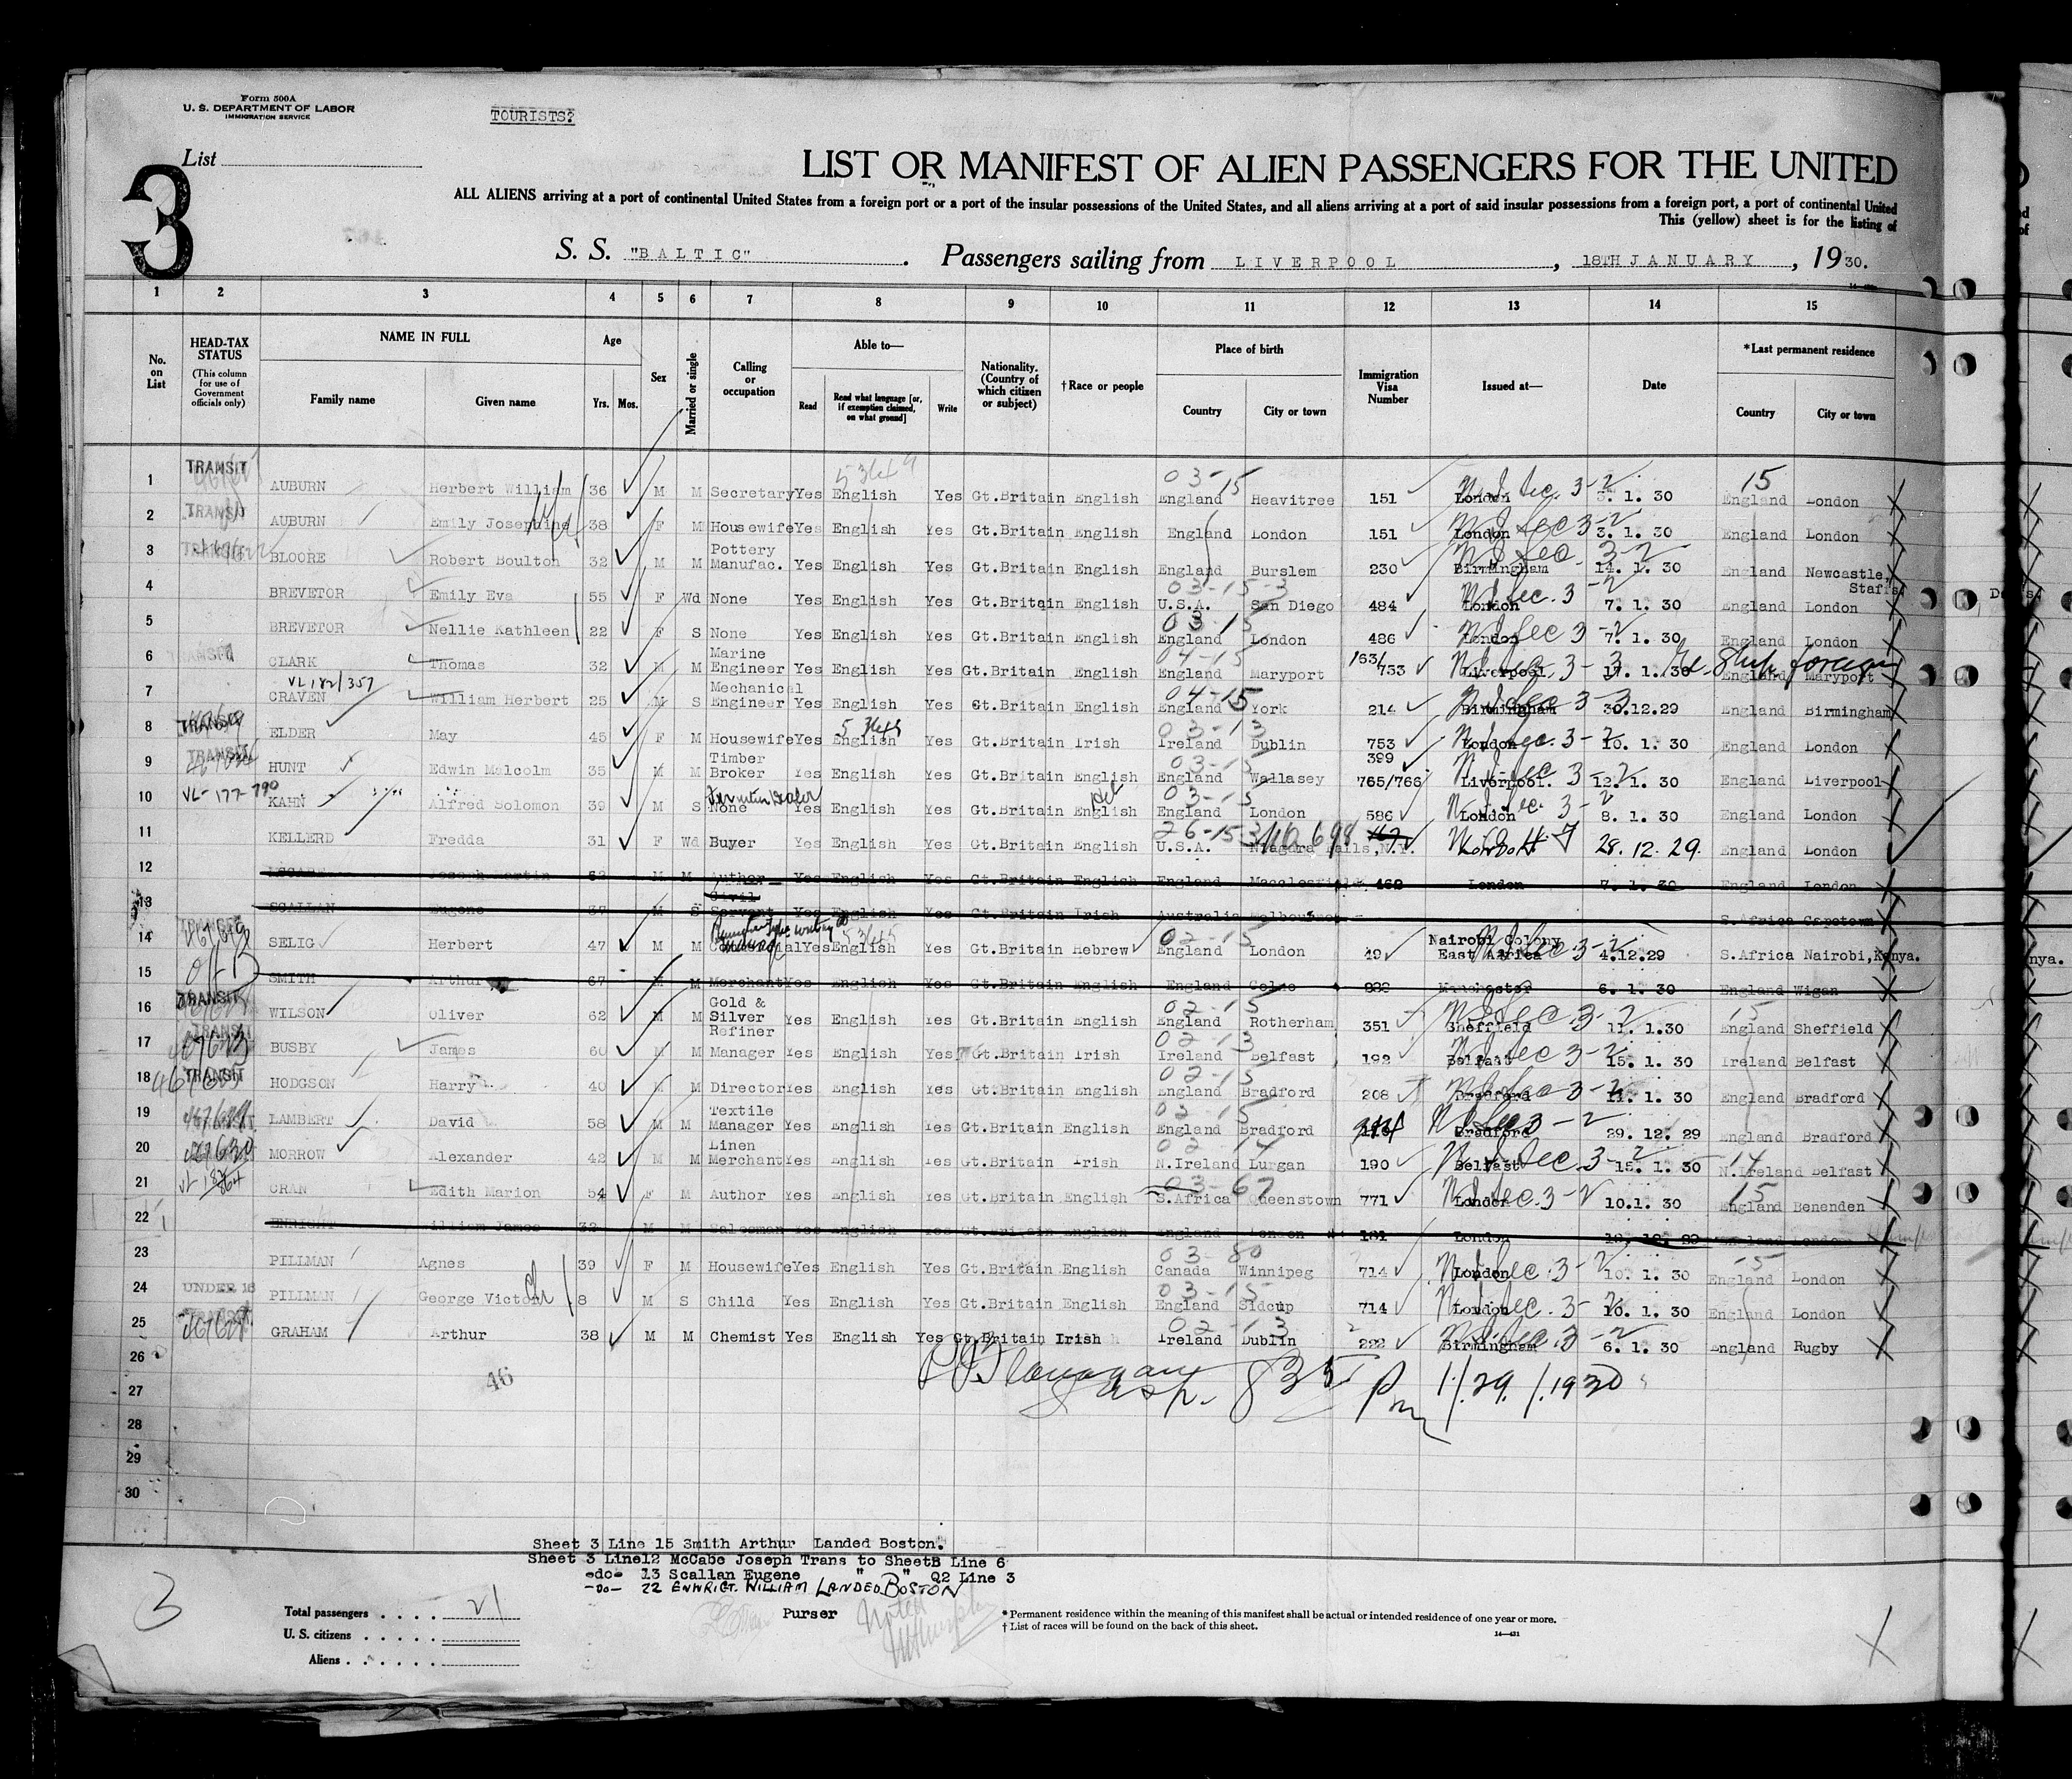 Form 500A
U. S. DEPARTMENT OF LABOR
IMMIGRATION SERVICE
TOURISTS?
List
3
LIST OR MANIFEST OF ALIEN PASSENGERS FOR THE UNITED
ALL ALIENS arriving at a port of continental United States from a foreign port or a port of the insular possessions of the United States, and all aliens arriving at a port of said insular possessions from a foreign port, a port of continental United
This (yellow) sheet is for the listing of
S. S. "BALTIC". Passengers sailing from LIVERPOOL, 18TH JANUARY, 1930.
1 2 3 4 5 6 7 8 9 10 11 12 13 14 15
No. on List
HEAD-TAX STATUS (This column for use of Government officials only)
NAME IN FULL Family name Given name
Age Yrs. Mos.
Sex
Married or single
Calling or occupation
Able to— Read Read what language [or, if exemption claimed, on what ground] Write
Nationality. (Country of which citizen or subject)
†Race or people
Place of birth Country City or town
Immigration Visa Number
Issued at—
Date
*Last permanent residence Country City or town
1 TRANSIT AUBURN Herbert William 36 M M Secretary Yes English Yes Gt.Britain English England Heavitree 151 London 3. 1. 30 England London
2 TRANSIT AUBURN Emily Josephine 38 F M Housewife Yes English Yes Gt.Britain English England London 151 London 3. 1. 30 England London
3 TRANSIT BLOORE Robert Boulton 32 M M Pottery Manufac. Yes English Yes Gt.Britain English England Burslem 230 Birmingham 14. 1. 30 England Newcastle, Staffs.
4 BREVETOR Emily Eva 55 F Wd None Yes English Yes Gt.Britain English U.S.A. San Diego 484 London 7. 1. 30 England London
5 BREVETOR Nellie Kathleen 22 F S None Yes English Yes Gt.Britain English England London 486 London 7. 1. 30 England London
6 TRANSIT CLARK Thomas 32 M M Marine Engineer Yes English Yes Gt.Britain English England Maryport 163/733 Liverpool 17. 1. 30 England Maryport
7 VL 182/357 CRAVEN William Herbert 25 M S Mechanical Engineer Yes English Yes Gt.Britain English England York 214 Birmingham 30.12.29 England Birmingham
8 TRANSIT ELDER May 45 F M Housewife Yes English Yes Gt.Britain Irish Ireland Dublin 753 London 10. 1. 30 England London
9 TRANSIT HUNT Edwin Malcolm 35 M M Timber Broker Yes English Yes Gt.Britain English England Wallasey 399 765/766 Liverpool. 12. 1. 30 England Liverpool
10 VL-177-790 KAHN Alfred Solomon 39 M S None Yes English Yes Gt.Britain English England London 586 London 8. 1. 30 England London
11 KELLERD Fredda 31 F Wd Buyer Yes English Yes Gt.Britain English U.S.A. Niagara Falls, N.Y. London 28. 12. 29. England London
12 Joseph Martin 62 M M Author Yes English Yes Gt.Britain English England Macclesfield 462 London 7. 1. 30 England London
13 SCALLAN Eugene 37 M S Civil Servant Yes English Yes Gt.Britain Irish Australia Melbourne S.Africa Capetown
14 TRANSIT SELIG Herbert 47 M M Yes English Yes Gt.Britain Hebrew England London 49 Nairobi Colony East Africa 4.12.29 S.Africa Nairobi, Kenya.
15 SMITH Arthur 67 M M Merchant Yes English Yes Gt.Britain English England Colne 882 Manchester 6. 1. 30 England Wigan
16 TRANSIT WILSON Oliver 62 M M Gold & Silver Refiner Yes English Yes Gt.Britain English England Rotherham 351 Sheffield 11. 1.30 England Sheffield
17 TRANSIT BUSBY James 60 M M Manager Yes English Yes Gt.Britain Irish Ireland Belfast 192 Belfast 15. 1. 30 Ireland Belfast
18 TRANSIT HODGSON Harry 40 M M Director Yes English Yes Gt.Britain English England Bradford 208 Bradford 11. 1. 30 England Bradford
19 LAMBERT David 58 M M Textile Manager Yes English Yes Gt.Britain English England Bradford Bradford 29. 12. 29 England Bradford
20 MORROW Alexander 42 M M Linen Merchant Yes English Yes Gt.Britain Irish N.Ireland Lurgan 190 Belfast 15. 1. 30 N.Ireland Belfast
21 CRAN Edith Marion 54 F M Author Yes English Yes Gt.Britain English S.Africa Queenstown 771 London 10.1. 30 England Benenden
22 ENRIGHT William James 32 M M Salesman Yes English Yes Gt.Britain English England London 181 London 12. 29 England London
23 PILLMAN Agnes 39 F M Housewife Yes English Yes Gt.Britain English Canada Winnipeg 714 London 10. 1. 30 England London
24 UNDER 16 PILLMAN George Victor 8 M S Child Yes English Yes Gt.Britain English England Sidcup 714 London 10. 1. 30 England London
25 TRANSIT GRAHAM Arthur 38 M M Chemist Yes English Yes Gt.Britain Irish Ireland Dublin 222 Birmingham 6. 1. 30 England Rugby
26
27 46 835 Pm 1/29/1930
28
29
30
Sheet 3 Line 15 Smith Arthur Landed Boston.
Sheet 3 Line12 McCabe Joseph Trans to SheetB Line 6
-do- 13 Scallan Eugene " " Q2 Line 3
-DO- 22 ENWRIGT. WILLIAM LANDED BOSTON
3
Total passengers . . . . 21
U. S. citizens . . . . .
Aliens . . . . . .
Purser
Noted
* Permanent residence within the meaning of this manifest shall be actual or intended residence of one year or more.
† List of races will be found on the back of this sheet.
14—431